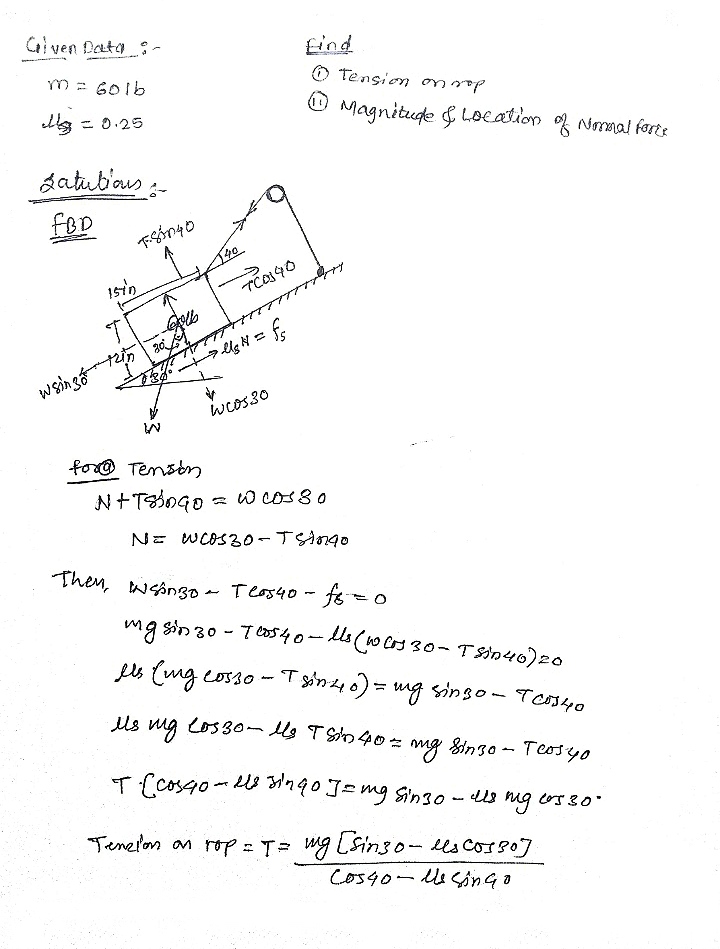 Given Data :-
Find
m = 60 lb
① Tension on rop
μs = 0.25
⑪ Magnitude & Location of Normal force
Solutions :-
FBD
T·Sin40
40
TCos40
15in
60lb
30
12in
μsN = fs
30°
Wsin30
WCOS30
W
for @ Tension
N + Tsin40 = W cos30
N = WCOS30 - T Sin40
Then, Wsin30 - T cos40 - fs = 0
mg sin 30 - T cos40 - μs (W cos 30 - T sin40) = 0
μs (mg cos30 - T sin40) = mg sin30 - T cos40
μs mg cos30 - μs T sin 40 = mg sin30 - T cos40
T·[cos40 - μs sin40] = mg sin30 - μs mg cos 30·
Tension on rop = T = mg [sin30 - μs cos30]
cos40 - μs sin40